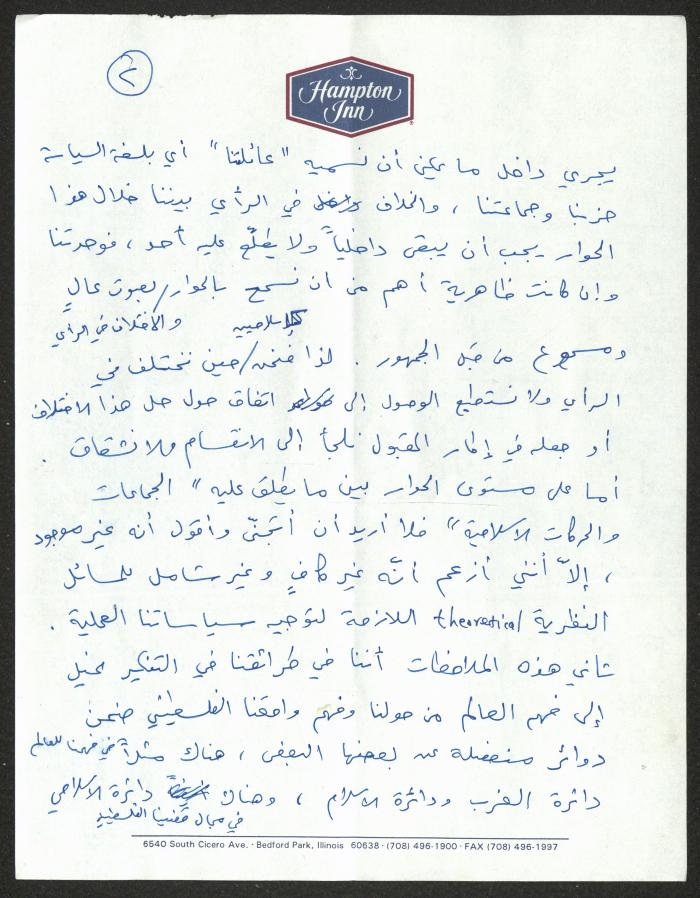 ٢
Hampton
Inn
يجري داخل ما يمكن أن نسميه "عائلتنا" أي بلغة السياسة
حزبنا وجماعتنا ، والخلاف في الرأي بيننا خلال هذا
الحوار يجب أن يبقى داخلياً ولا يطلّع عليه أحد ، فوحدتنا
وان كانت ظاهرية أهم من ان نسمح بالحوار/بصوت عالٍ
كإسلاميين والاختلاف في الرأي
ومسموع من قبل الجمهور . لذا فنحن/حين نختلف في
الرأي ولا نستطيع الوصول إلى اتفاق حول حل هذا الاختلاف
أو جعله في إطار المقبول نلجأ إلى الانقسام والانشقاق .
أما على مستوى الحوار بين ما يطلق عليه "الجماعات
والحركات الاسلامية" فلا أريد أن أتجنّى وأقول أنه غير موجود
، إلاّ أنني أزعم أنّه غير كافٍ وغير شامل للمسائل
النظرية theoretical اللازمة لتوجيه سياساتنا العملية .
ثاني هذه الملاحظات أننا في طرائقنا في التفكير نميل
إلى فهم العالم من حولنا وفهم واقعنا الفلسطيني ضمن
دوائر منفصلة عن بعضها البعض ، هناك مثلاً في فهمنا للعالم
دائرة الغرب ودائرة الاسلام ، وهناك دائرة الاسلامي
في مجال قضيتنا الفلسطينية
6540 South Cicero Ave. · Bedford Park, Illinois 60638 · (708) 496-1900 · FAX (708) 496-1997